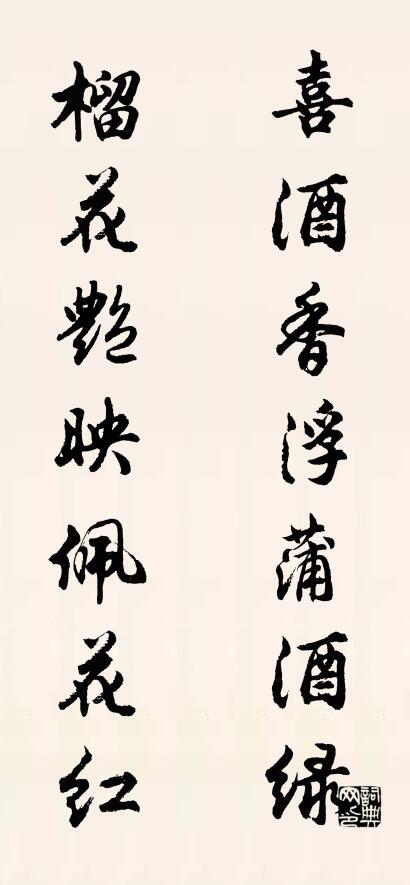 喜酒香浮蒲酒绿
榴花艳映佩花红
詞典网印